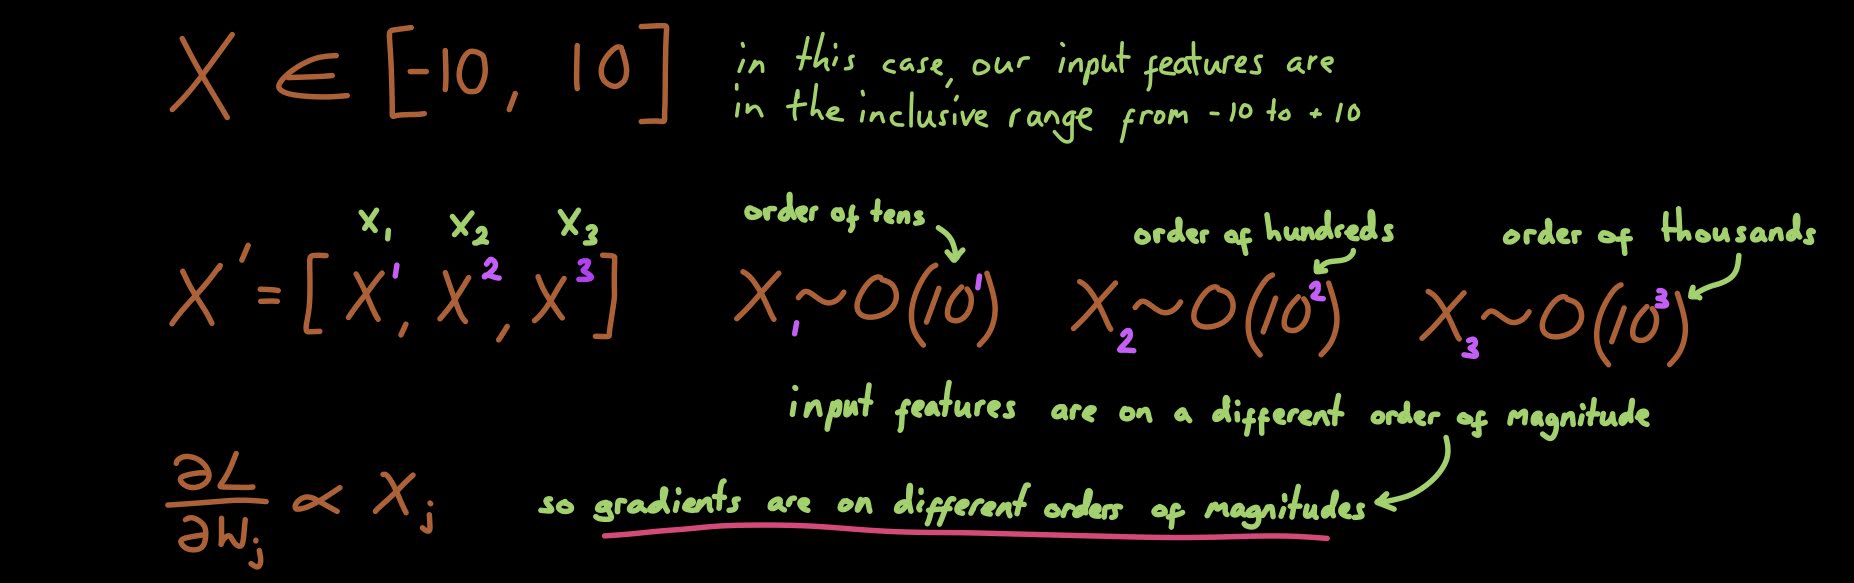 X ∈ [-10, 10]
in this case, our input features are
in the inclusive range from -10 to +10
x₁ x₂ x₃
X' = [X¹, X², X³]
order of tens
X₁ ~ O(10¹)
order of hundreds
X₂ ~ O(10²)
order of thousands
X₃ ~ O(10³)
input features are on a different order of magnitude
∂L/∂Wⱼ ∝ Xⱼ
so gradients are on different orders of magnitudes